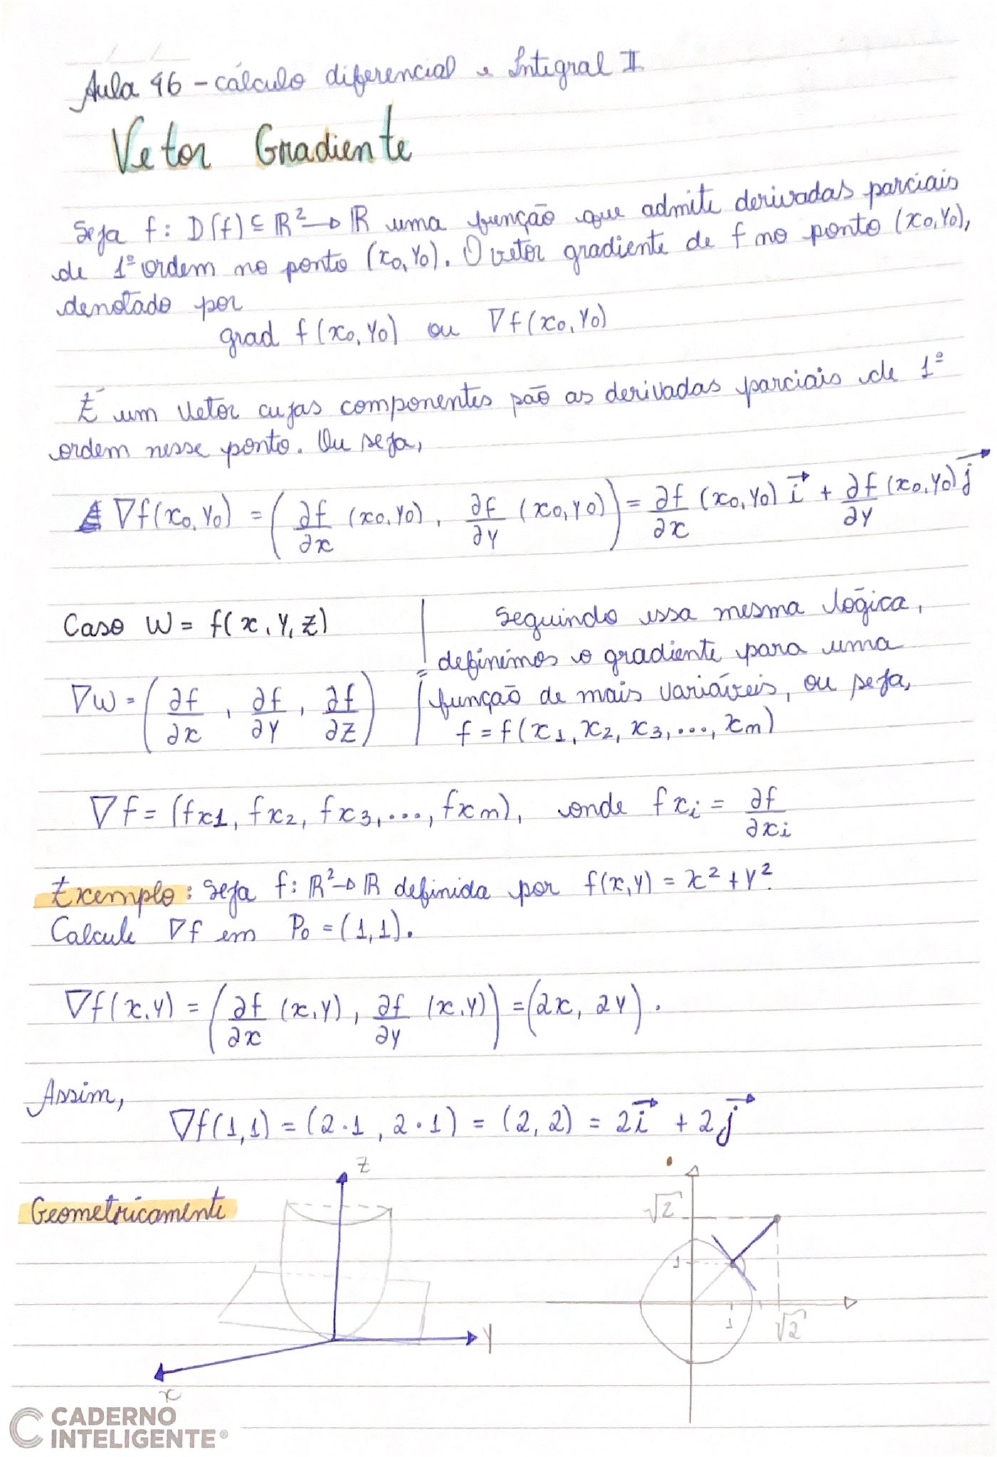 Aula 46 - cálculo diferencial e Integral II
Vetor Gradiente
Seja f: D(f) ⊆ ℝ² → ℝ uma função que admite derivadas parciais
de 1ª ordem no ponto (x₀, y₀). O vetor gradiente de f no ponto (x₀, y₀),
denotado por
grad f(x₀, y₀) ou ∇f(x₀, y₀)
É um vetor cujas componentes são as derivadas parciais de 1ª
ordem nesse ponto. Ou seja,
∇f(x₀, y₀) = (∂f/∂x (x₀, y₀), ∂f/∂y (x₀, y₀)) = ∂f/∂x (x₀, y₀) i⃗ + ∂f/∂y (x₀, y₀) j⃗
Caso W = f(x, y, z)
∇W = (∂f/∂x, ∂f/∂y, ∂f/∂z)
Seguindo essa mesma lógica,
definimos o gradiente para uma
função de mais variáveis, ou seja,
f = f(x₁, x₂, x₃, ..., xₙ)
∇f = (fx₁, fx₂, fx₃, ..., fxₙ), onde fxᵢ = ∂f/∂xᵢ
Exemplo: Seja f: ℝ² → ℝ definida por f(x,y) = x² + y².
Calcule ∇f em P₀ = (1,1).
∇f(x,y) = (∂f/∂x (x,y), ∂f/∂y (x,y)) = (2x, 2y).
Assim,
∇f(1,1) = (2·1, 2·1) = (2, 2) = 2i⃗ + 2j⃗
Geometricamente
z
y
x
√2
1
1
√2
CADERNO
INTELIGENTE®